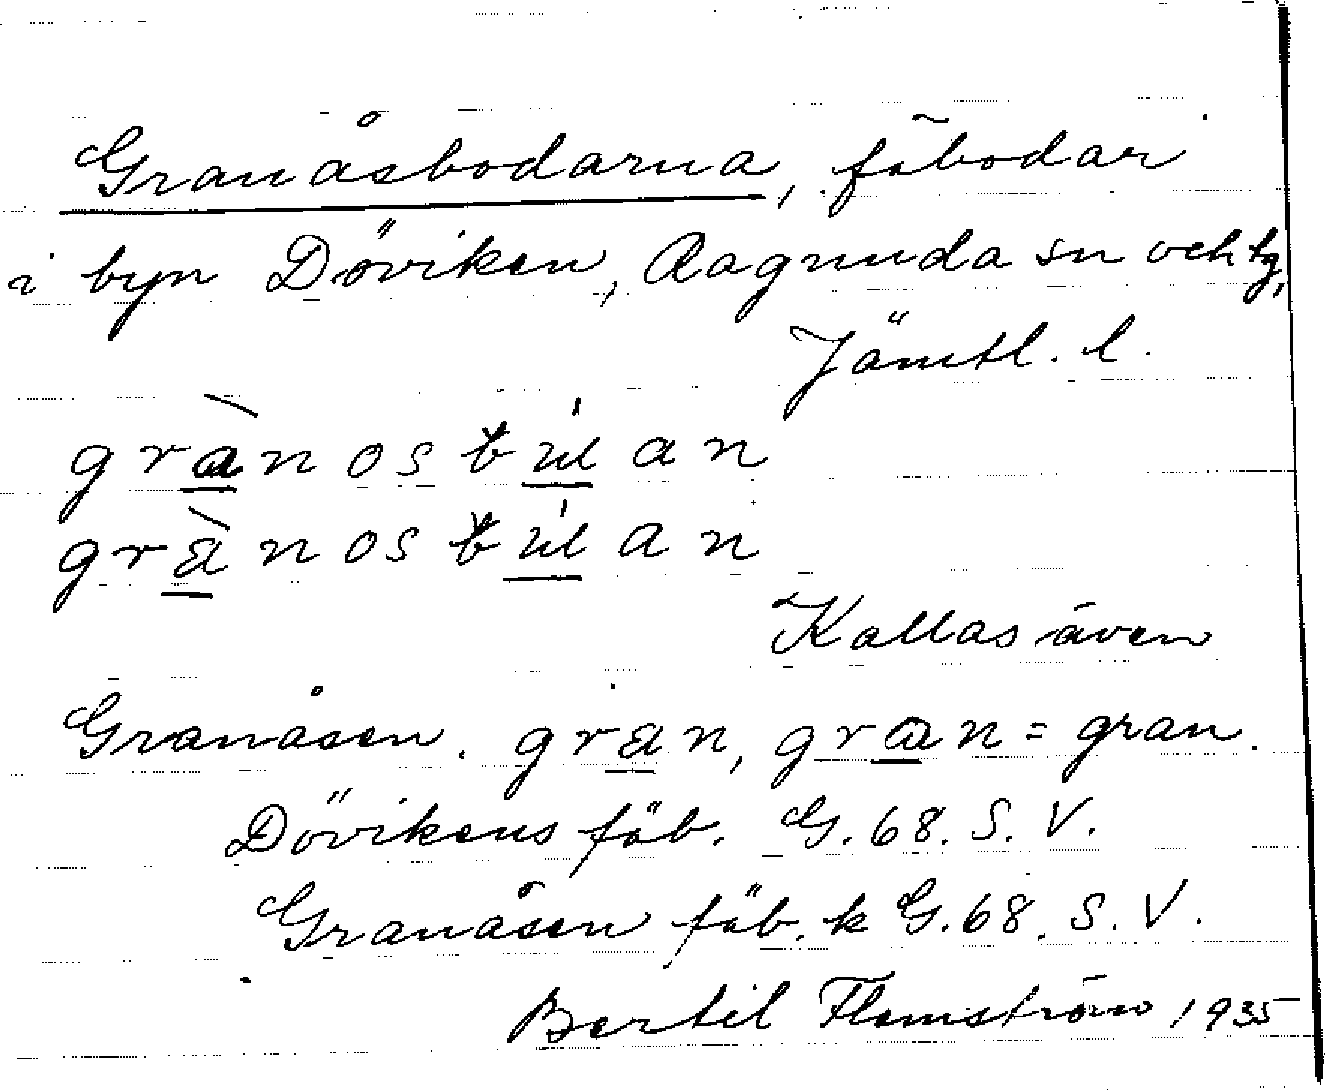 Granåsbodarna, fäbodar
i byn Döviken, Ragunda sn och tg,
Jämtl. l.
grànosbúan
grànosbúan
Kallas även
Granåsen. gran, gran = gran.
Dövikens fäb. G. 68. S. V.
Granåsen fäb. k G. 68. S. V.
Bertil Flemström 1935